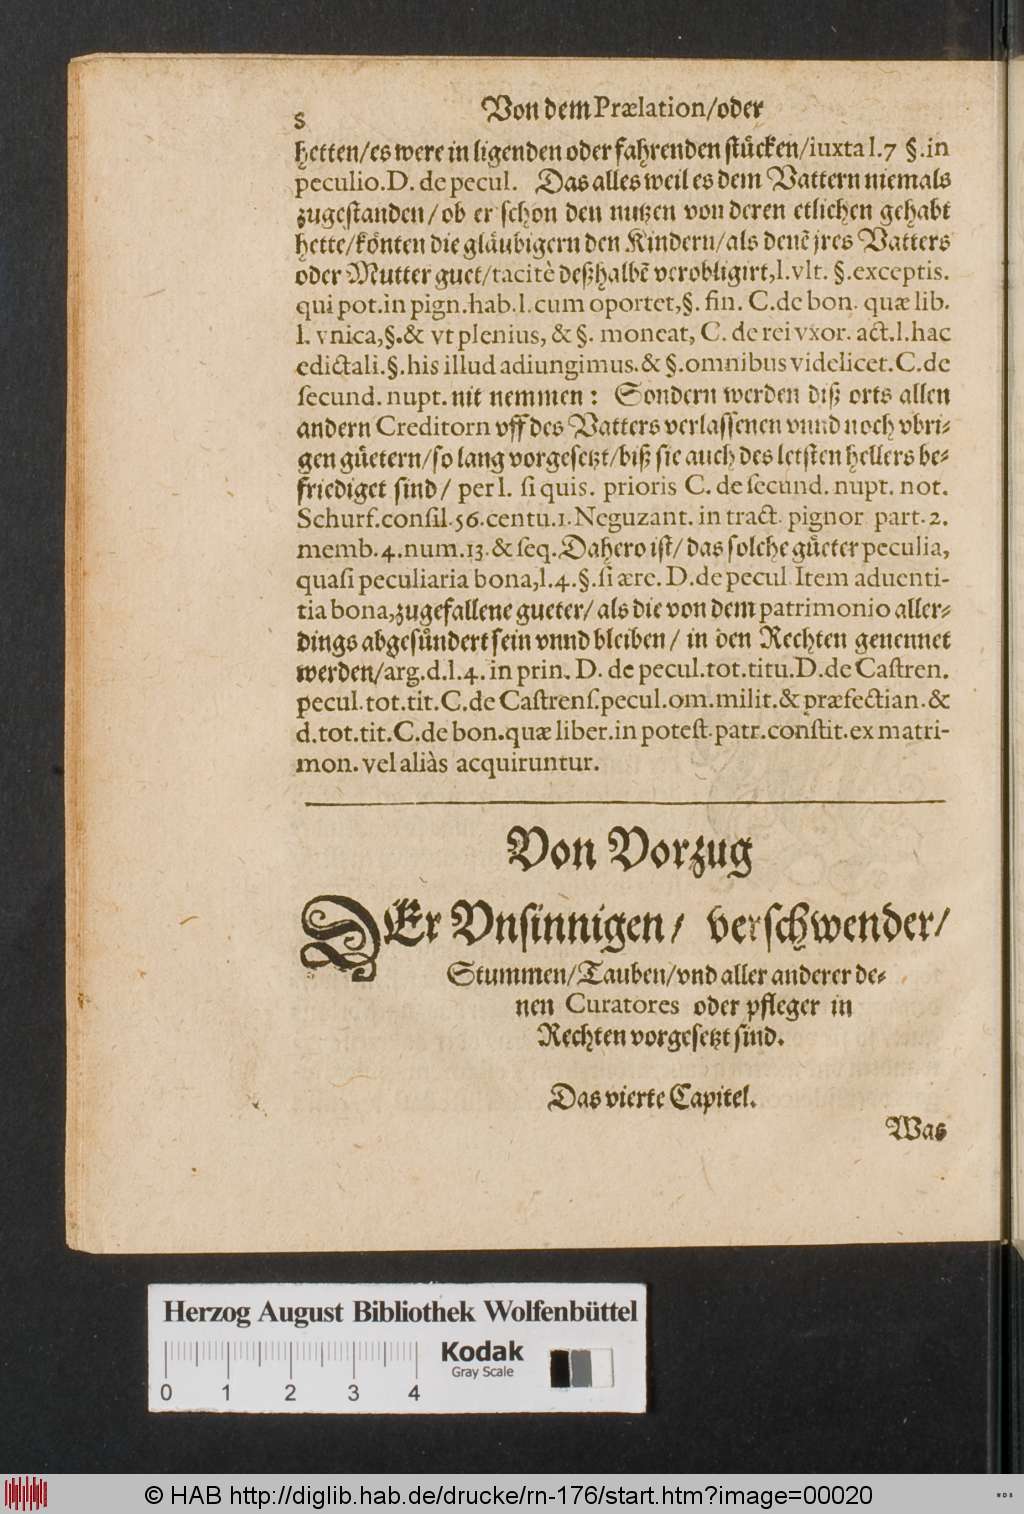 8 Von dem Prælation/oder
hetten/es were in ligenden oder fahrenden stuͤcken/iuxta l.7 §.in
peculio.D. de pecul. Das alles weil es dem Vattern niemals
zugestanden/ob er schon den nutzen von deren etlichen gehabt
hette/koͤnten die glaͤubigern den Kindern/als denẽ jres Vatters
oder Mutter guet/tacitè deßhalbẽ verobligirt,l.vlt. §.exceptis.
qui pot.in pign.hab.l.cum oportet,§. fin. C.de bon. quæ lib.
l. vnica,§.& vt plenius, & §. moneat, C. de rei vxor. act.l.hac
edictali.§.his illud adiungimus.& §.omnibus videlicet.C.de
secund. nupt. nit nemmen: Sondern werden diß orts allen
andern Creditorn vff des Vatters verlassenen vnnd noch vbri-
gen guͤetern/so lang vorgesetzt/biß sie auch des letsten hellers be-
friediget sind/ per l. si quis. prioris C. de secund. nupt. not.
Schurf.consil.56.centu.1.Neguzant. in tract. pignor part. 2.
memb.4.num.13.& seq.Dahero ist/das solche guͤeter peculia,
quasi peculiaria bona,l.4.§.si ære. D.de pecul Item aduenti-
tia bona,zugefallene gueter/als die von dem patrimonio aller-
dings abgesuͤndert sein vnnd bleiben/ in den Rechten genennet
werden/arg.d.l.4. in prin. D. de pecul.tot.titu.D.de Castren.
pecul.tot.tit.C.de Castrens.pecul.om.milit.& præfectian.&
d.tot.tit.C.de bon.quæ liber.in potest.patr.constit.ex matri-
mon. vel aliàs acquiruntur.
Von Vorzug
DEr Vnsinnigen/ verschwender/
Stummen/Tauben/vnd aller anderer de-
nen Curatores oder pfleger in
Rechten vorgesetzt sind.
Das vierte Capitel.
Was
Herzog August Bibliothek Wolfenbüttel
Kodak
Gray Scale
0 1 2 3 4
© HAB http://diglib.hab.de/drucke/rn-176/start.htm?image=00020